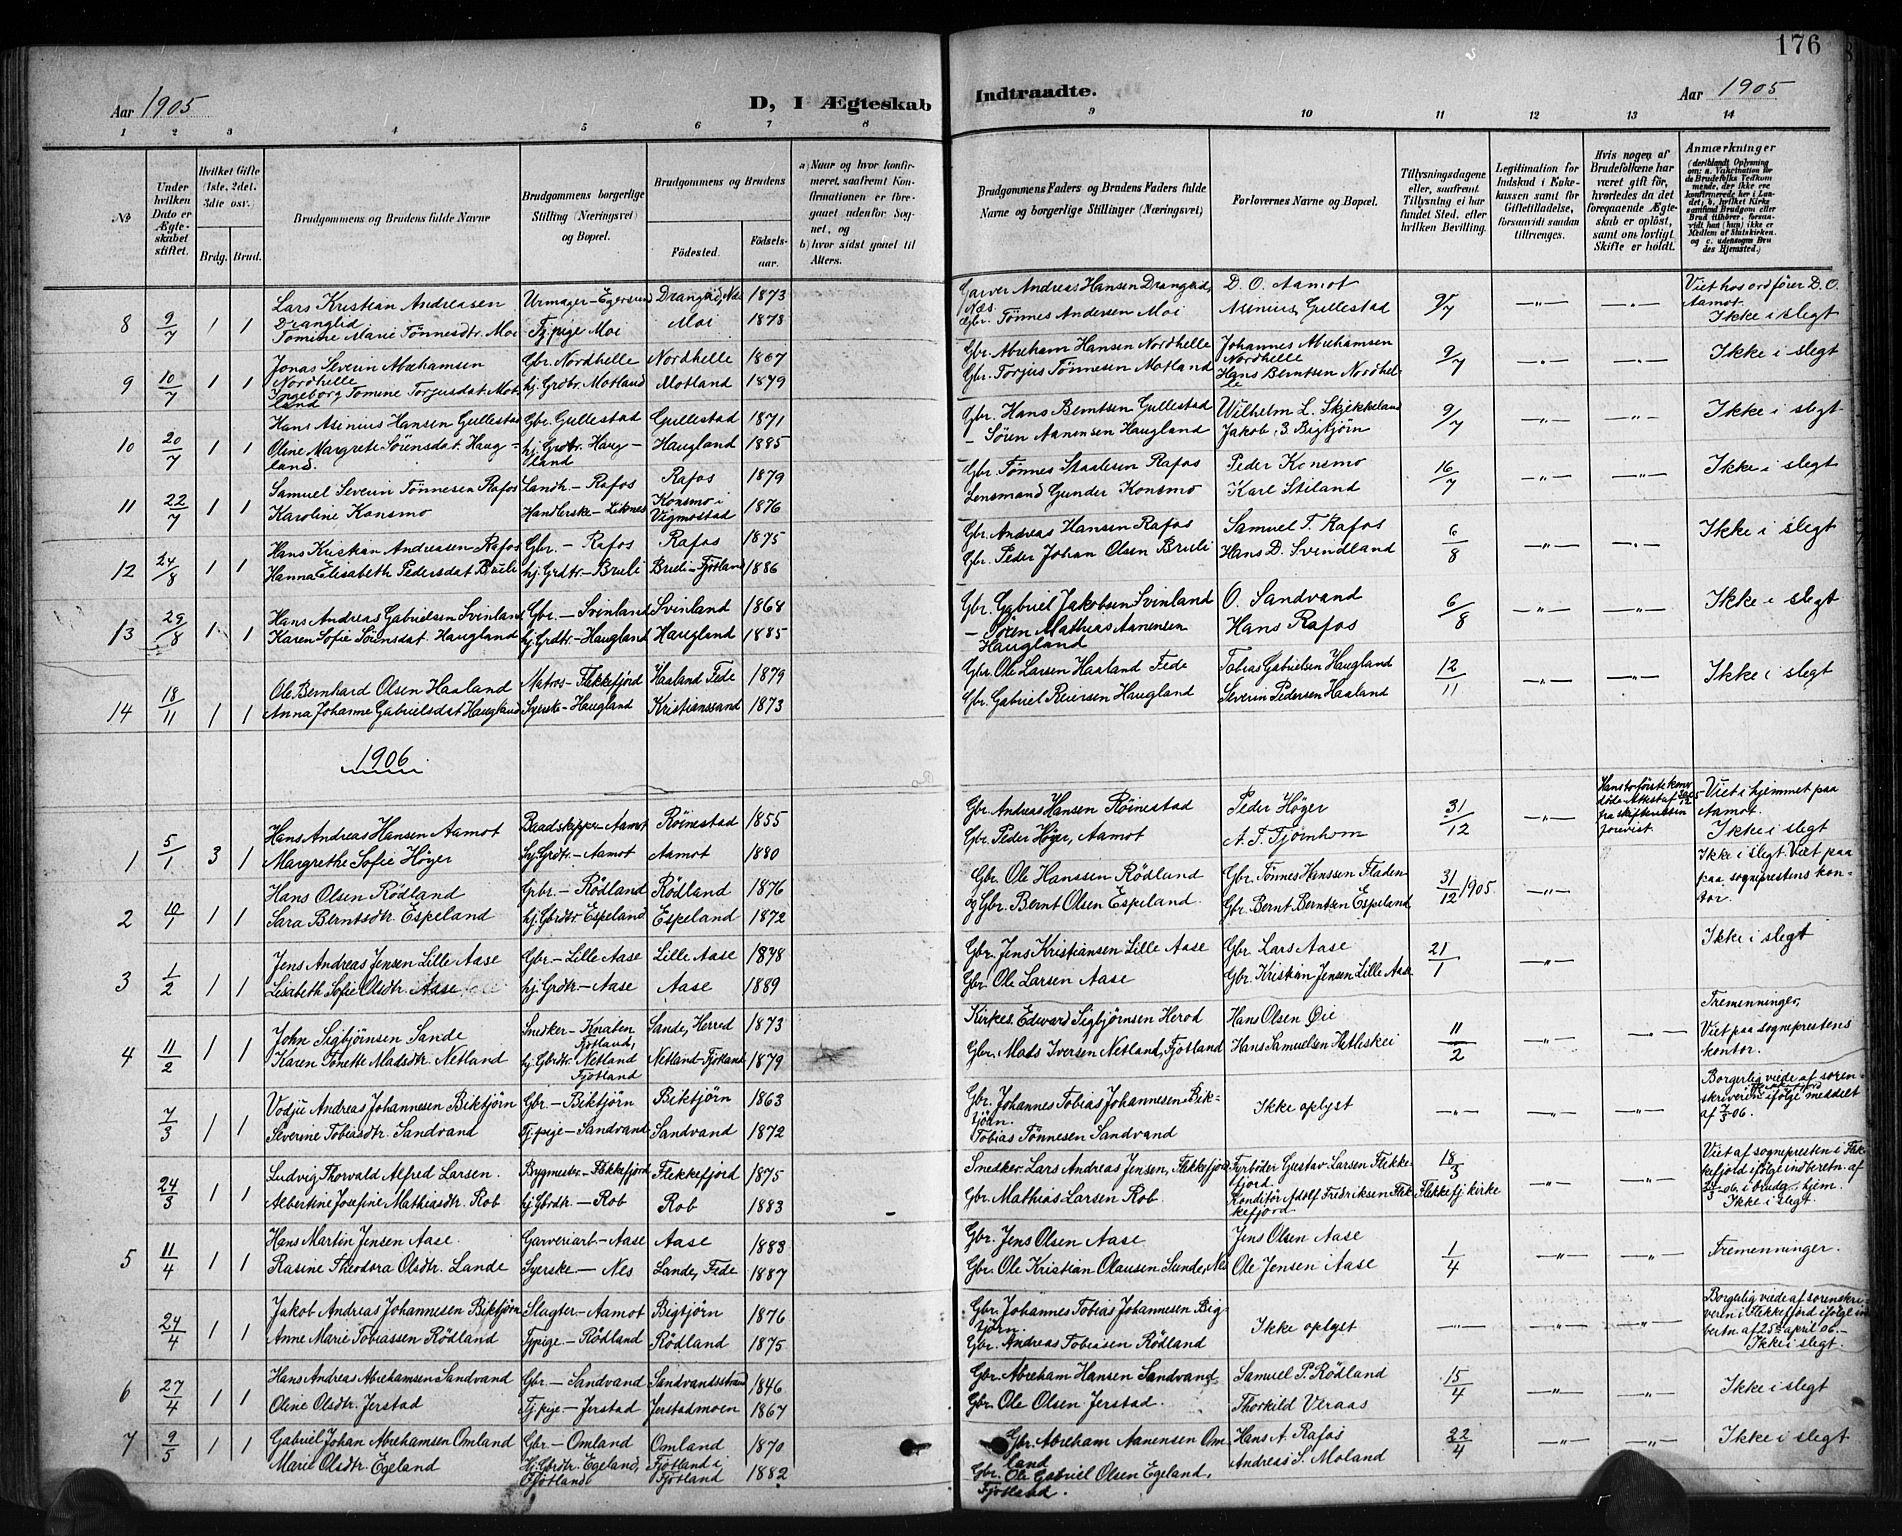 176
Aar 1905
D, I Ægteskab Indtraadte.
Aar 1905
1 2 3 4 5 6 7 8 9 10 11 12 13 14
No
Under hvilken Dato er Ægteskabet stiftet.
Hvilket Gifte (1ste, 2det, 3die osv.)
Brdg. Brud.
Brudgommens og Brudens fulde Navne
Brudgommens borgerlige Stilling (Næringsvei) og Bopæl.
Brudgommens og Brudens
Fødested.
Fødselsaar.
a) Naar og hvor konfirmeret, saafremt Konfirmationen er foregaaet udenfor Sognet, og
b) hvor sidst gaaet til Alters.
Brudgommens Faders og Brudens Faders fulde Navne og borgerlige Stillinger (Næringsvei)
Forlovernes Navne og Bopæl.
Tillysningsdagene eller, saafremt Tillysning ei har fundet Sted, efter hvilken Bevilling.
Legitimation for Indskud i Enkekassen samt for Giftetilladelse, forsaavidt saadan tiltrænges.
Hvis nogen af Brudefolkene har været gift før, hvorledes da det foregaaende Ægteskab er opløst, samt om lovligt Skifte er holdt.
Anmærkninger
8 9/7 1 1 Lars Kristian Andreasen Dranglid Urmager - Egersund Drangeid, Næs 1873 Garver Andreas Hansen Drangeid, Næs. D. O. Aamot 9/7 -"- -"- Viet hos ordfører D. O. Aamot.
Tomine Marie Tönnesdtr. Moi Tj.pige Moi Moi 1878 Gbr. Tönnes Andersen Moi Asinius Gullestad Ikke i slegt
9 10/7 1 1 Jonas Severin Abrahamsen Nordhelle Gbr. Nordhelle Nordhelle 1867 Gbr. Abraham Hansen Nordhelle Johannes Abrahamsen Nordhelle 9/7 -"- -"- Ikke i slegt
Ingeborg Tomine Torjusdat. Motland hj. Grdbr. Motland Motland 1879 Gbr. Torjus Tönnesen Motland Hans Berntsen Nordhelle
10 20/7 1 1 Hans Asinius Hansen Gullestad Gbr. Gullestad Gullestad 1871 Gbr. Hans Berntsen Gullestad Wilhelm L. Skjekkeland 9/7 -"- -"- Ikke i slegt
Oline Margrete Sörensdat. Haugland. hj. Grdbr. Haugland Haugland 1885 - Sören Aanensen Haugland Jakob, 3. Bigtjörn
11 22/7 1 1 Samuel Severin Tönnesen Rafos Landh. - Rafos Rafos 1879 Gbr. Tönnes Staalesen Rafos Peder Konsmo 16/7 -"- -"- Ikke i slegt
Karoline Konsmo Handlerske - Liknes Konsmo i Vigmostad 1876 Lensmand Gunder Konsmo Karl Stiland
12 24/8 1 1 Hans Kristian Andreasen Rafos Gbr. - Rafos Rafos 1875 Gbr. Andreas Hansen Rafos Samuel T. Rafos 6/8 -"- -"- Ikke i slegt
Hanna Elisabeth Pedersdat Bruli hj. Grdtr. - Bruli Bruli - Fjotland 1886 Gbr. Peder Johan Olsen Bruli Hans D. Svindland
13 29/8 1 1 Hans Andreas Gabrielsen Svinland Gbr. - Svinland Svinland 1868 Gbr. Gabriel Jakobsen Svinland O. Sandvand 6/8 -"- -"- Ikke i slegt
Karen Sofie Sörensdat. Haugland hj. Grdtr. - Haugland Haugland 1885 - Sören Mathias Aanensen Haugland Hans Rafos
14 18/11 1 1 Ole Bernhard Olsen Haaland Matros - Flekkefjord Haaland Fede 1879 Gbr. Ole Larsen Haaland Fede Tobias Gabrielsen Haugland 12/11 -"- -"- Ikke i slegt
Anna Johanne Gabrielsdat. Haugland Syersk - Haugland Kristianssand 1873 Gbr. Gabriel Reiersen Haugland Severin Pedersen Haaland
1906
1 5/1 3 1 Hans Andreas Hansen Aamot Baadskipper - Aamot Röinestad 1855 Gbr. Andreas Hansen Röinestad Peder Höyer 31/12 -"- Viet i hjemmet paa Aamot.
Margrethe Sofie Höyer hj. Grdtr. - Aamot Aamot 1880 Gbr. Peder Höyer, Aamot A. T. Tjörnhom Ikke i slegt
2 10/1 1 1 Hans Olsen Rödland Grbr. - Rödland Rödland 1876 Gbr. Ole Hanssen Rödland Gbr. Tönnes Hanssen Fladen 31/12 1905 -"- Ikke i slegt. Viet paa paa sogneprestens kontor.
Sara Berntsdtr. Espeland hj. Gbrdtr. Espeland Espeland 1872 Gbr. Bernt Olsen Espeland. Gbr. Bernt Berntsen Espeland
3 1/2 1 1 Jens Andreas Jensen Lille Aase Gbr. - Lille Aase Lille Aase 1878 Gbr. Jens Kristiansen Lille Aase Gbr. Lars Aase 21/1 -"- Ikke i slegt
Lisabeth Sofie Olsdtr. Aase hj. Grdtr. - Aase Aase 1889 Gbr. Ole Larsen Aase Gbr. Kristian Jensen Lille Aase
4 11/2 1 1 John Sigbjörnsen Sande Snedker - Knaben Fjotland, Sande, Herred 1873 Kirkes. Edward Sigbjörnsen Herod Hans Olsen Öie 11/2 -"- -"- Tremenninger,
Karen Tonette Madsdtr. Netland hj. Gbrdtr. Netland Fjotland Netland - Fjotland 1879 Gbr. Mads Iversen Netland, Fjotland Hans Samuelsen Hatleskei Viet paa sogneprestens kontor.
7/3 1 1 Vodju Andreas Johannesen Biktjörn Gbr. - Biktjörn Biktjörn 1863 Gbr. Johannes Tobias Johannesen Biktjörn. Ikke oplyst -"- -"- -"- Borgerlig viede af sorenskriveren i Flekkefjord ifölge meddelt af 7/3 06.
Severine Tobiasdtr. Sandvand Tj.pige - Sandvand Sandvand 1872 Tobias Tönnesen Sandvand
24/3 1 1 Ludvig Thorvald Alfred Larsen. Bygmester - Flekkefjord Flekkefjord 1875 Snedker Lars Andreas Jensen, Flekkefjord Fyrböder Gustav Larsen Flekkefjord 18/3 -"- -"- Viet af sognepresten i Flekkefjord ifölge indberetn. af 24/3 06, i brudg. hjem.
Albertine Josefine Mathiasdtr. Rob hj. Gbrdtr. - Rob Rob 1883 Gbr. Mathias Larsen Rob. Konditor Adolf Fredriksen Flekkefjord Flekkefj. kirke Ikke i slegt.
5 11/4 1 1 Hans Martin Jensen Aase. Garveriarb - Aase Aase 1883 Gbr. Jens Olsen Aase Jens Olsen Aase 1/4 -"- -"- Tremenninger.
Rasine Theodora Olsdtr. Lande Syerske - Nes Lande, Fede 1887 Gbr. Ole Kristian Olausen Lunde, Nes Ole Jensen Aase
24/4 1 1 Jakob Andreas Johannesen Biktjörn Slagter - Aamot Bigtjörn 1876 Gbr. Johannes Tobias Johannesen Bigtjörn. Ikke oplyst -"- -"- -"- Borgerlig viede af sorenskriveren i Flekkefjord ifölge indbertn. af 25de april 06. -
Anne Marie Tobiassen Rödland Tj.pige - Rödland Rödland 1875 Gbr. Andreas Tobiasen Rödland Ikke i slegt.
6 27/4 1 1 Hans Andreas Abrahamsen Sandvand Gbr. - Sandvand Sandvandsstrand 1846 Gbr. Abraham Hansen Sandvand. Samuel P. Rödland 15/4 -"- -"- Ikke i slegt
Oline Olsdtr. Jerstad Tj.pige - Jerstad Jerstadmoen 1867 Gbr. Ole Olsen Jerstad. Thorkild Veraas
7 9/5 1 1 Gabriel Johan Abrahamsen Omland Gbr. - Omland Omland 1870 Gbr. Abraham Aanensen Omland Hans A. Rafos 22/4 -"- -"- Ikke i slegt
Marie Olsdtr. Egeland Hj. Gbrdtr. Egeland, Fjotland Fjotland i Fjotland 1882 Gbr. Ole Gabriel Olsen Egeland, Fjotland. Andreas S. Moland